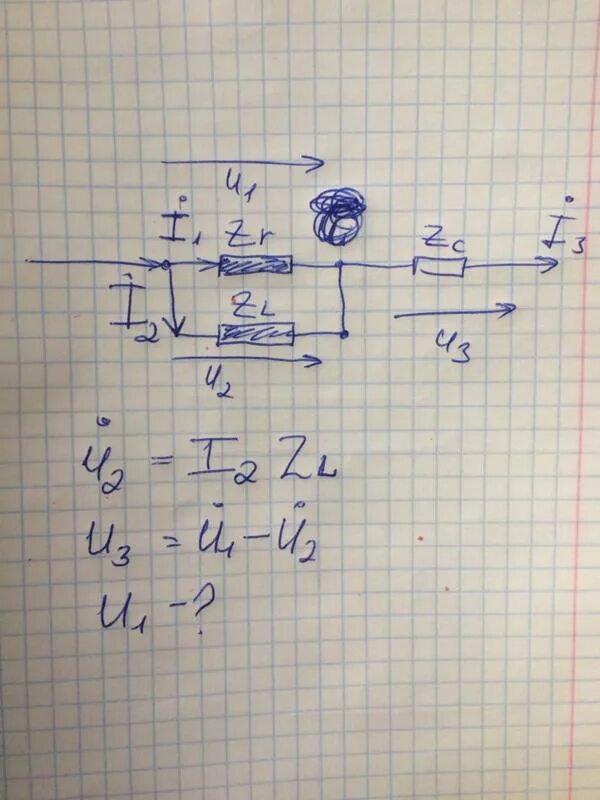 u₁
İ₁ Zr Zc İ₃
İ₂ ZL
u₂ u₃
u̇₂ = I₂ ZL
u₃ = u̇₁ – u̇₂
u₁ – ?